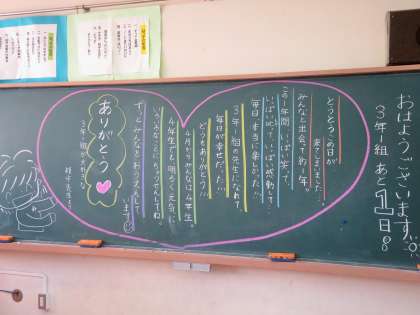 おはようございます。
3年1組 あと1日。
とうとうこの日が
来てしまいました…。
みんなと出会って約1年。
この1年間、いっぱい笑って、
いっぱい泣いて、いっぱい感動して、
毎日本当に楽しかった…。
3年1組の先生になれて
毎日が幸せだった…。
どうもありがとう!!
4月からみんなは4年生。
4年生でも明るく元気に
いろんなことにちょうせんしてね。
ずっとみんなをおうえんして
います
ありがとう
3年1組のみんな